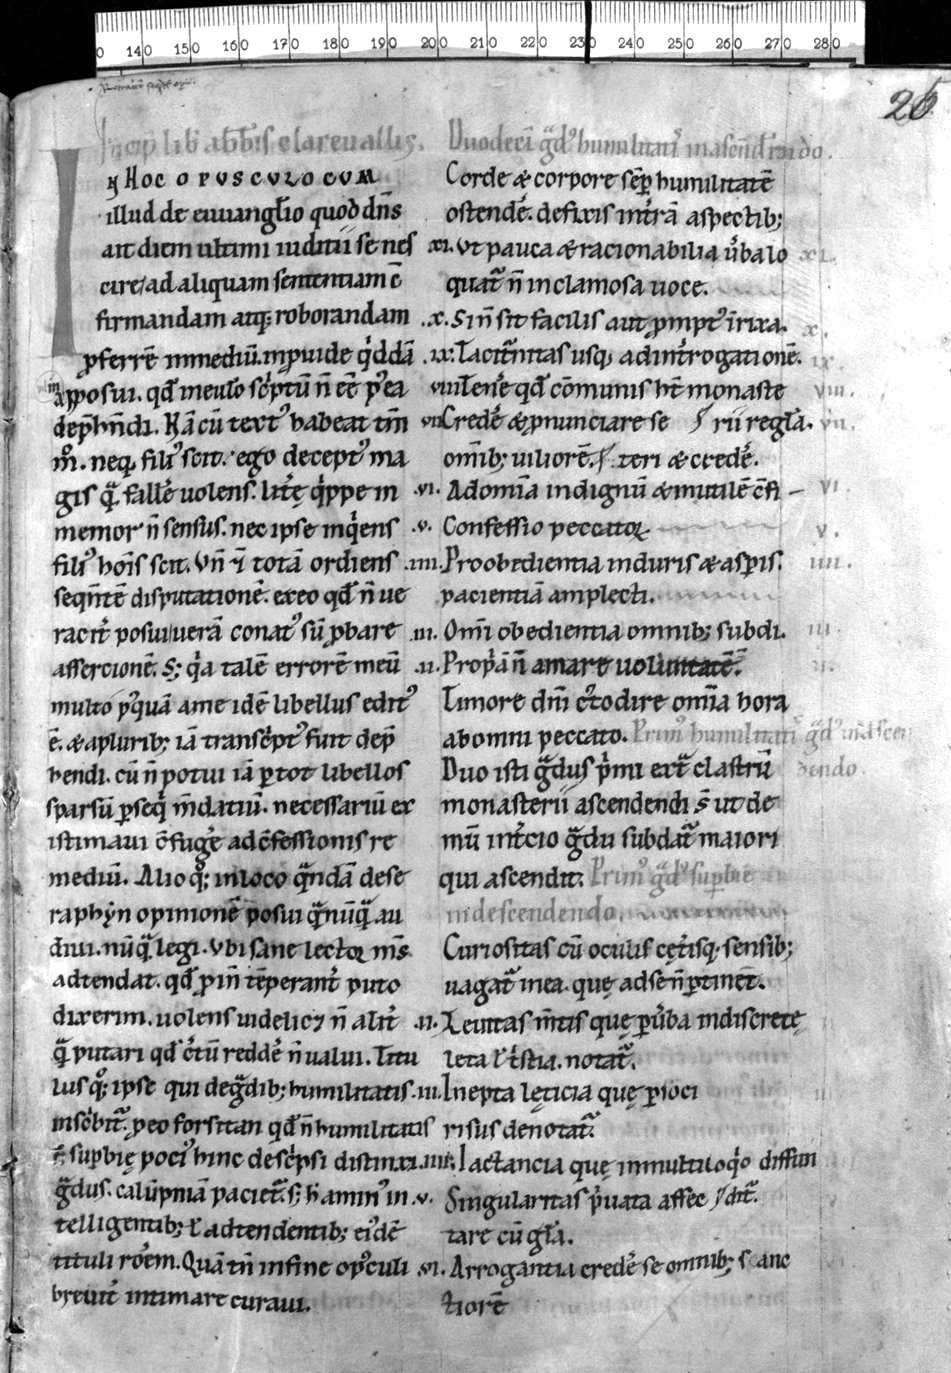 26
Incip lib abb̄is clareuallis.
IN HOC OPVSCVLO CVM
illud de euuangl̄io quod dn̄s
ait diem ultimi iuditii se nes
cire, ad aliquam sententiam c̄
firmandam atq; roborandam
ꝓferrē in mediū. inꝓuide q̇ddā
apposui. qd̄ in eug̃lo sc̓ptū n̄ eē p̓ ea
dep̄hn̄di. Nā cū text᾽ habeat tm̄
m̊. neq; fili᾽ scit. ego decept᾽ ma
gis q̄ fallẻ uolens. litẻ q̇ppe in
memor n̄ sensus. nec ipse inq̇ens
fili᾽ hoīs scit. Vn̄ ⁊ totā ordiens
seqn̄tē disputationē. ex eo qd̄ n̄ ue
racit̓ posui uerā conat᾽ sū ꝓbare
assercionē. S; q̇a talē errorē meū
multo p᾽quā a me idē libellus edit᾽
ē. & a plurib; iā transc̓pt᾽ fuit dep̄
hendi. cū n̄ potui iā ꝑ tot libellos
sparsū ꝑseq̇ m̄datiū. necessariū ex
istimaui c̄fugẻ ad c̄fessionis re
mediū. Alio q̊; in loco q̄ndā de se
raphẏn opinionē posui q̄ nūq̄ au
diui. nūq̄ legi. Vbi sane lector m̄s
adtendat. qd̄ ꝓin̄ tēperant̓ puto
dixerim. uolens uidelic⁊ n̄ alit̓
q̄ putari qd̄ c̓tū reddẻ n̄ ualui. Titu
lus q̊; ipse qui de ḡdib; humilitatis
insc̓bit̃. ꝑ eo forsitan qd̄ n̄ humilitatis
s; suꝑbię poci᾽ hinc desc̓psi distinxi.
g̃dus. calūpniā paciet̃. s; h̃ a min᾽ in
telligentib; ł adtendentib; ei᾽dē
tituli rōem. Quā tn̄ in fine op᾽culi
breuit̓ intimare curaui.
Duodeci g̃d᾽ humilitatī in ascend̄endo.
Corde & corpore sēꝑ humilitatē
ostendẻ. defixis in tr̃ā aspectib;
.xi. Vt pauca & racionabilia ủba lo
quat̃ n̄ in clamosa uoce.
.x. Si n̄ sit facilis aut ꝓmpt᾽ ī rixa.
.ix. Tacit̃nitas usq; ad int̓rogationē.
viii. Tenẻ qd̄ cōmunis ht̄ monaste
rii regl̃a.
vii. Credẻ & ꝓnunciare se
om̄ib; uiliorē.
.vi. Ad om̄ia indignū & inutilē c̄fi
teri & credẻ.
.v. Confessio peccatoꝝ
.iiii. Pro obedientia in duris & asꝑis.
pacientiā amplecti.
.iii. Om̄i obedientia omnib; subdi.
.ii. Propiā n̄ amare uoluntatē.
Timore dn̄i c᾽todire om̄ia hora
ab omni peccato. Prim᾽ humilitatī g̃d᾽ in ascen
dendo.
Duo isti g̃dus p̓mi ext̃ claustrū
monasterii ascendendi s̄ ut de
mū int̓cio g̃du subdat̃ maiori
qui ascendit. Prim᾽ g̃d᾽ suꝑbie
in descendendo.
Curiositas cū oculis cęt̓isq; sensib;
uagat̃ in ea. quę ad se n̄ ꝑtinēt.
.ii. Leuitas m̄tis quę ꝑ ủba indiscrete
leta ł t̓stia. notat̃.
.iii. Inepta lęticia quę ꝑ ioci
risus denotat̃.
.iiii. Iactancia quę in multiloq̊o diffun
dit̃.
.v. Singularitas p̓uata affec
tare cū gl̃a.
.vi. Arrogantia credẻ se omnib; sanc
tiorē
xi.
x.
ix.
viii.
vii.
vi
v.
iiii.
iii
ii.